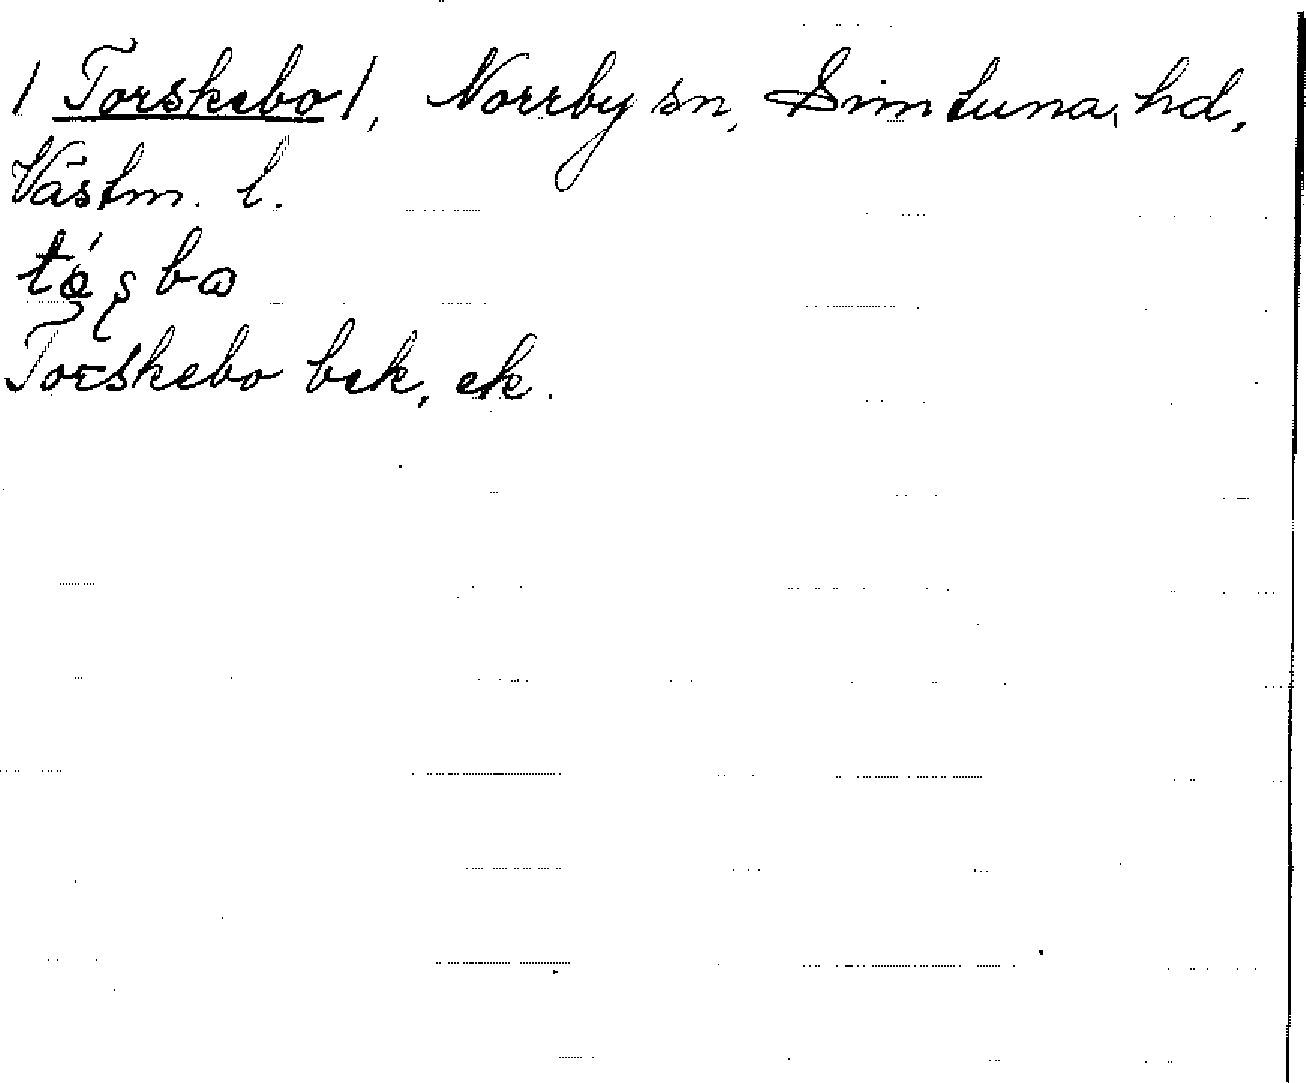 / Torskebo /, Norrby sn, Simtuna hd,
Västm. l.
Torskebo bek, ek.